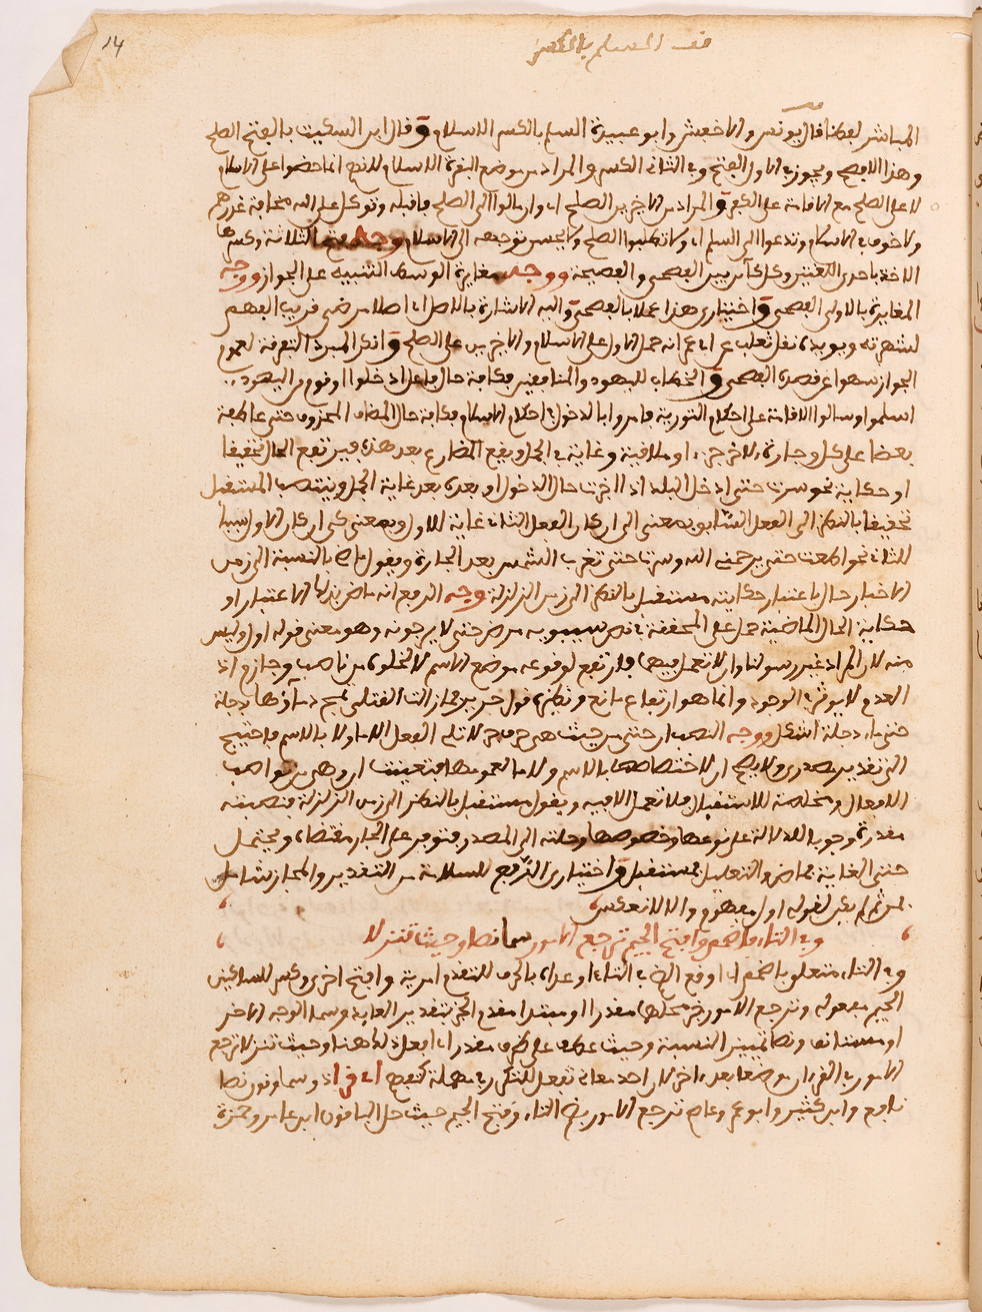 14
قف السلم بالكسر
المباشر لبعضنا قال يونس والاخفش وابو عبيدة السلم بالكسر الاسلام وقال ابن السكيت بالفتح الصلح
وهذا الافصح ويجوز في الاول الفتح وفي الثاني الكسر والمراد من موضع البقرة الاسلام لانهم انما حضوا على الاسلام
لا على الصلح مع الاقامة على الكفر والمراد من الاخرين الصلح اي وان مالوا الى الصلح فاقبله وتوكل على الله مخافة غدرهم
ولا خوف في الاسلام وتدعوا الى السلم اي ولا تطلبوا الصلح ولا يحسن توجيهه الى الاسلام وجه فتح الثلاثة وكسرها
الاخذ باحدى اللغتين وكل كامر بين الفصحى والفصيحة ووجه مغايرة الوسط التنبيه على الجواز ووجه
المغايرة بالاولى الفصحى واختياري هذا عملا بالفصحى واليه الاشارة بالاصل اي اصلا من ضى قريب الفهم
لشهرته ويؤيده نقل ثعلب عن ابي عمرو انه حمل الاول على الاسلام والاخرين على الصلح وانكر المبرد التفرقة لعموم
الجواز سهوا عن قصده الفصحى والخطاب لليهود والمنافقين فكافة حال فاعل ادخلوا او قوم من اليهود
اسلموا وسالوا الاقامة على احكام التورية فامروا بالدخول في احكام الاسلام فكافة حال المضاف المحذوف حتى عاطفة
بعضا على كل وجارة لاخر جزء او ملاقيه وغاية في الجمل ويقع المضارع بعد هذه فيرتفع الحال تحقيقا
او حكاية نحو سرت حتى ادخل البلد اذا اخبرت حال الدخول او بعده بعد غاية الجمل وينتصب المستقبل
تحقيقا بالنظر الى الفعل السابق بمعنى الى ان كان الفعل الثاني غاية للاول وبمعنى كي ان كان الاول سببا
للثاني نحو اطعت حتى يرحمني الله وسرت حتى تغرب الشمس بعد الجارة ويقول ماض بالنسبة الى زمن
الاخبار حال باعتبار حكايته مستقبل بالنظر الى زمن الزلزلة وجه الرفع انه ماض بهذا الاعتبار او
حكاية الحال الماضية حملا على المحققة نص سيبويه مرض حتى لا يرجونه وهو معنى قوله اول وليس
منه لان المراد غير رسولنا وان لا تعمل فيها فارتفع لوقوعه موضع الاسم لا لخلوه من ناصب وجازم اذ
العدم لا يوثر في الوجود وانما هو ارتفاع مانع ونظيره قول جرير فما زالت القتلى تمج دماؤها بدجلة
حتى ماء دجلة اشكل ووجه النصب ان حتى من حيث هي حرف جر لا تلي الفعل الا ماولا بالاسم فاحتيج
الى تقدير مصدري ولا يصح ان لاختصاصها بالاسم ولا ما لعمومها فتعينت ان وهي من نواصب
الافعال ومخلصة للاستقبال فلا تعمل الا فيه ويقول مستقبل بالنظر الى زمن الزلزلة فنصبته
مقدرة وجوبا للدلالة على نوعها وخصوصها وحلته الى المصدر فتوفر على الجار مقتضاه ويحتمل
حتى الغاية فماض والتعليل فمستقبل واختياري الرفع للسلامة من التقدير والمجاز شامل
من ثم لم يكن لقوله اول مفهوم والا لانعكس
وفي التاء فاضمم وافتح الجيم ترجع الامور سما نصا وحيث تنزلا
وفي التاء متعلق باضمم اي اوقع الضم في التاء او عداه بالحرف للتقدم امرية وافتح اخرى وكسر للساكنين
الجيم مفعوله وترجع الامور جر محلها مقدرا او مبتدا مقدم الخبر بتقدير العايد وسما الوجه الاخر
او مستانف ونصا تمييز النسبة وحيث عطف على ظرف مقدر اي افعل ذلك هنا وحيث تنزل ترجع
الامور في القرءان موضعا بعد اخر لان احد معاني تفعل للتكرير بمهلة كتفهم اي قرا ذو سما ونون نصا
نافع وابن كثير وابو عمرو وعاصم ترجع الامور بضم التاء وفتح الجيم حيث حل الباقون ابن عامر وحمزة